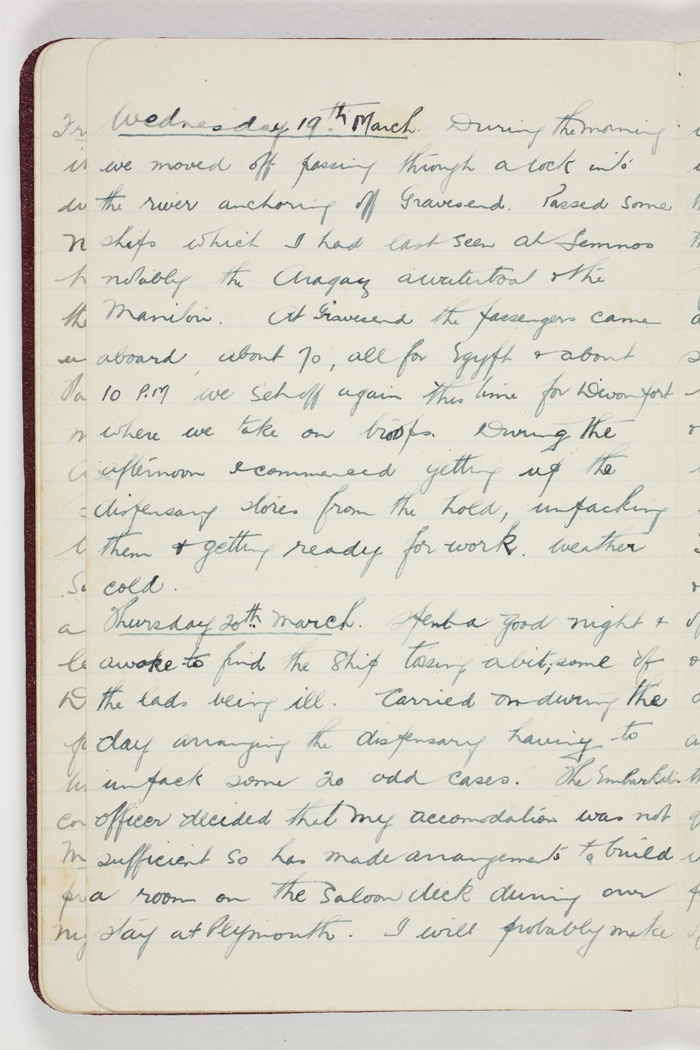 Wednesday 19th March. During the morning
we moved off passing through a lock into
the river anchoring off Gravesend. Passed some
ships which I had last seen at Lemnos
notably the Aragaz a watertoat & the
Manitou. At Gravesend the passengers came
aboard about 70, all for Egypt & about
10 P.M we set off again this time for Devonport
where we take on troops. During the
afternoon commenced getting up the
dispensary stores from the hold, unpacking
them & getting ready for work. Weather
cold.
Thursday 20th March. Spent a good night &
awoke to find the ship tossing a bit, some of
the lads being ill. Carried on during the
day arranging the dispensary having to
unpack some 20 odd cases. The Embarkation
officer decided that my accomodation was not
sufficient so has made arrangements to build
a room on the Saloon deck during our
stay at Plymouth. I will probably make